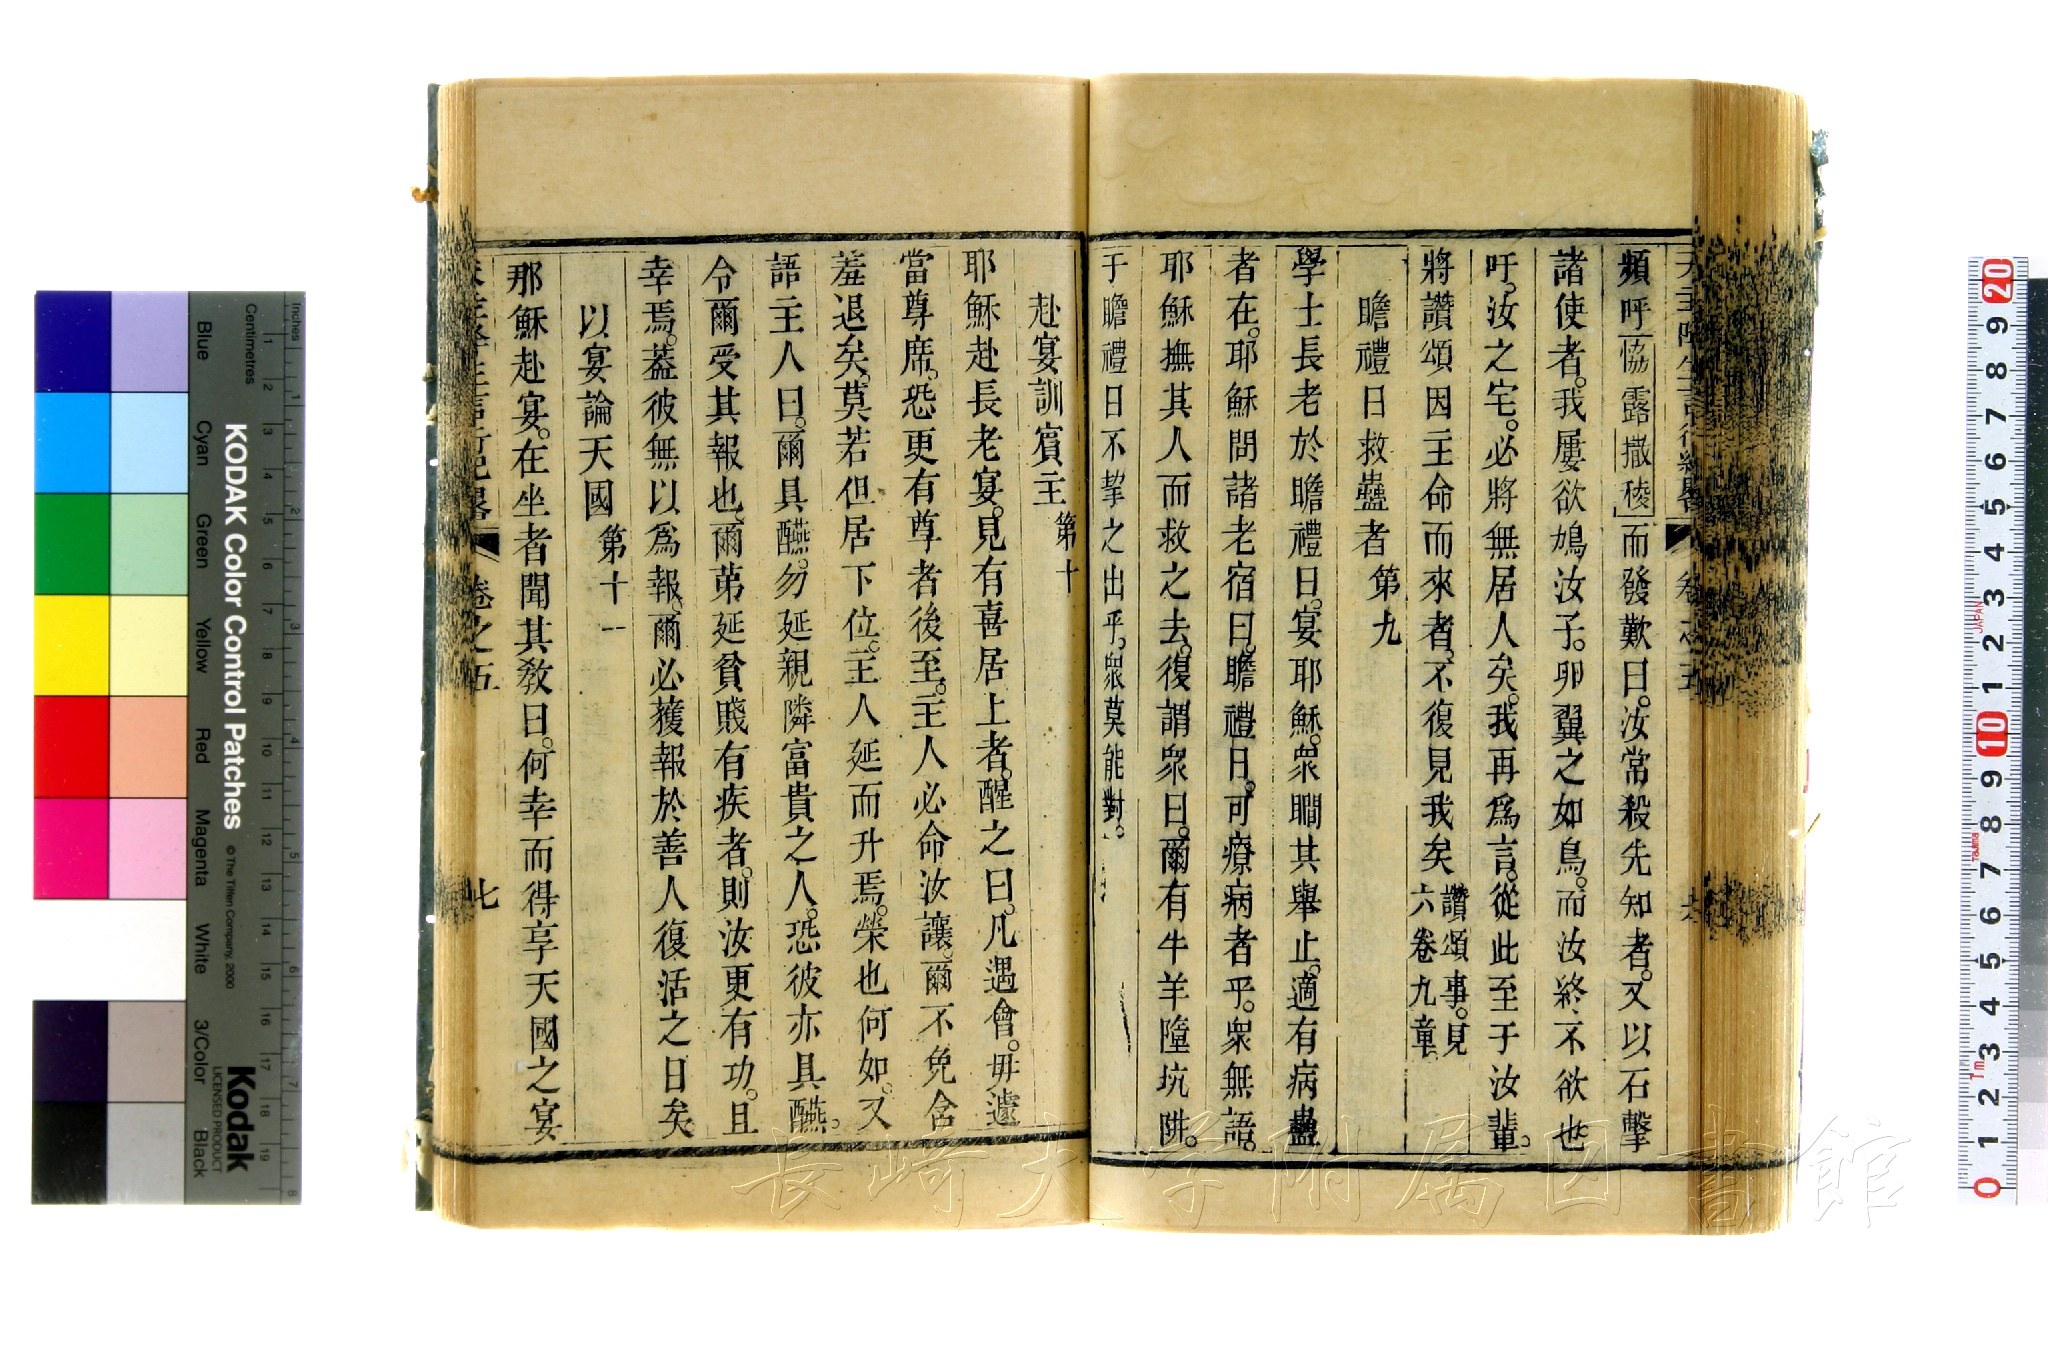 頻呼協露撒稜而發歎曰。汝常殺先知者。又以石擊
諸使者。我屢欲鳩汝子。卵翼之如鳥。而汝終不欲也
吁。汝之宅。必將無居人矣。我再爲言。從此至于汝輩。
將讚頌因主命而來者。不復見我矣讚頌事。見六卷九章
瞻禮日救蠱者 第九
學士長老於瞻禮日。宴耶穌。衆瞯其舉止。適有病蠱
者在。耶穌問諸老宿曰。瞻禮日。可療病者乎。衆無語。
耶穌撫其人而救之去。復謂衆曰。爾有牛羊墮坑阱。
于瞻禮日不挈之出乎。衆莫能對。
赴宴訓賓主 第十
耶穌赴長老宴。見有喜居上者。醒之曰。凡遇會。毋遽
當尊席。恐更有尊者後至。主人必命汝讓。爾不免含
羞退矣。莫若但居下位。主人延而升焉。榮也何如。又
語主人曰。爾具醼。勿延親隣富貴之人。恐彼亦具醼。
令爾受其報也。爾苐延貧賤有疾者。則汝更有功。且
幸焉。葢彼無以爲報。爾必獲報於善人復活之日矣
以宴論天國 第十一
耶穌赴宴。在坐者聞其教曰。何幸而得享天國之宴
卷之五
七
KODAK Color Control Patches
© The Tiffen Company, 2000
Kodak
LICENSED PRODUCT
Inches
Centimetres
Blue
Cyan
Green
Yellow
Red
Magenta
White
3/Color
Black
JAPAN
Tajima
長崎大学附属図書館